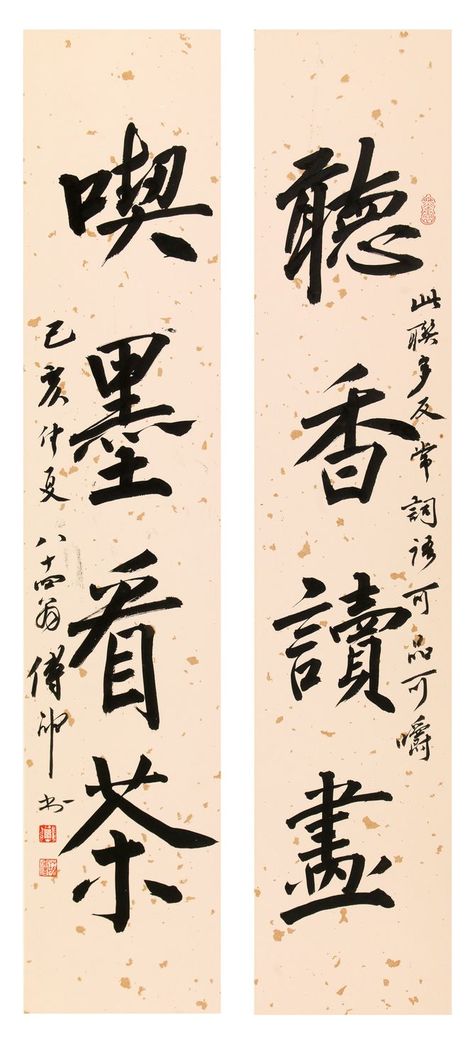 聽香讀畫
此聯多反常詞語可品可嚼
喫墨看茶
己亥仲夏八十四翁傅书